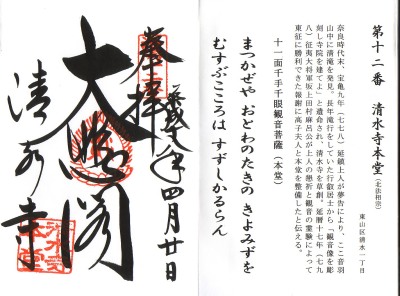 第十二番　清水寺本堂（北法相宗）
東山区清水一丁目
奈良時代末、宝亀九年（七七八）延鎮上人が夢告により、ここ音羽
山中に清滝を発見。長年滝行をしていた行叡居士から「観音像を彫
刻し寺院を建てよ」と遺命され、清水寺を草創。延暦十七年（七九
八）征夷大将軍坂上田村麻呂公が上人の懇祈と観音の霊験によって
東征に勝利できた報謝に高子夫人と本堂を整備したと伝える。
十一面千手千眼観音菩薩（本堂）
まつかぜや　おとわのたきの　きよみずを
むすぶこころは　すずしかるらん
奉拝
平成十八年四月廿日
大悲閣
清水寺